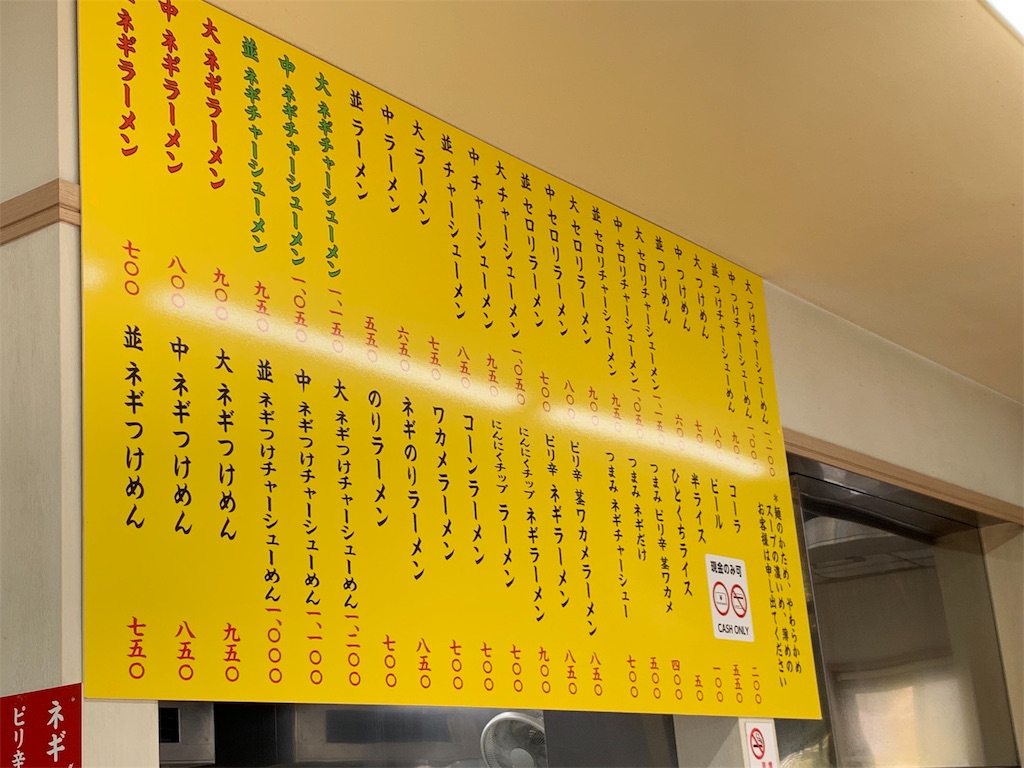 ネギラーメン 七〇〇
中 ネギラーメン 八〇〇
大 ネギラーメン 九〇〇
並 ネギチャーシューメン 九五〇
中 ネギチャーシューメン 一、〇五〇
大 ネギチャーシューメン 一、一五〇
並 ラーメン 五五〇
中 ラーメン 六五〇
大 ラーメン 七五〇
並 チャーシューメン 八五〇
中 チャーシューメン 九五〇
大 チャーシューメン 一、〇五〇
並 セロリラーメン 七〇〇
中 セロリラーメン 八〇〇
大 セロリラーメン 九〇〇
並 セロリチャーシューメン 九五〇
中 セロリチャーシューメン 一、〇五〇
大 セロリチャーシューメン 一、一五〇
並 つけめん 六〇〇
中 つけめん 七〇〇
大 つけめん 八〇〇
並 つけチャーシューめん 九〇〇
中 つけチャーシューめん 一、〇〇〇
大 つけチャーシューめん 一、一〇〇
並 ネギつけめん 七五〇
中 ネギつけめん 八五〇
大 ネギつけめん 九五〇
並 ネギつけチャーシューめん 一、〇〇〇
中 ネギつけチャーシューめん 一、一〇〇
大 ネギつけチャーシューめん 一、二〇〇
のりラーメン 七〇〇
ネギのりラーメン 八五〇
ワカメラーメン 七〇〇
コーンラーメン 七〇〇
にんにくチップ ラーメン 七〇〇
にんにくチップ ネギラーメン 九〇〇
ピリ辛 ネギラーメン 八五〇
ピリ辛 茎ワカメラーメン 八五〇
つまみ ネギチャーシュー 七〇〇
つまみ ネギだけ 五〇〇
つまみ ピリ辛 茎ワカメ 四〇〇
ひとくちライス 五〇
半ライス 一〇〇
ビール 五五〇
コーラ 二〇〇
*麺のかため、やわらかめ
スープの濃いめ、薄めの
お客様は申し出てください
現金のみ可
CASH ONLY
ネギ
ピリ辛